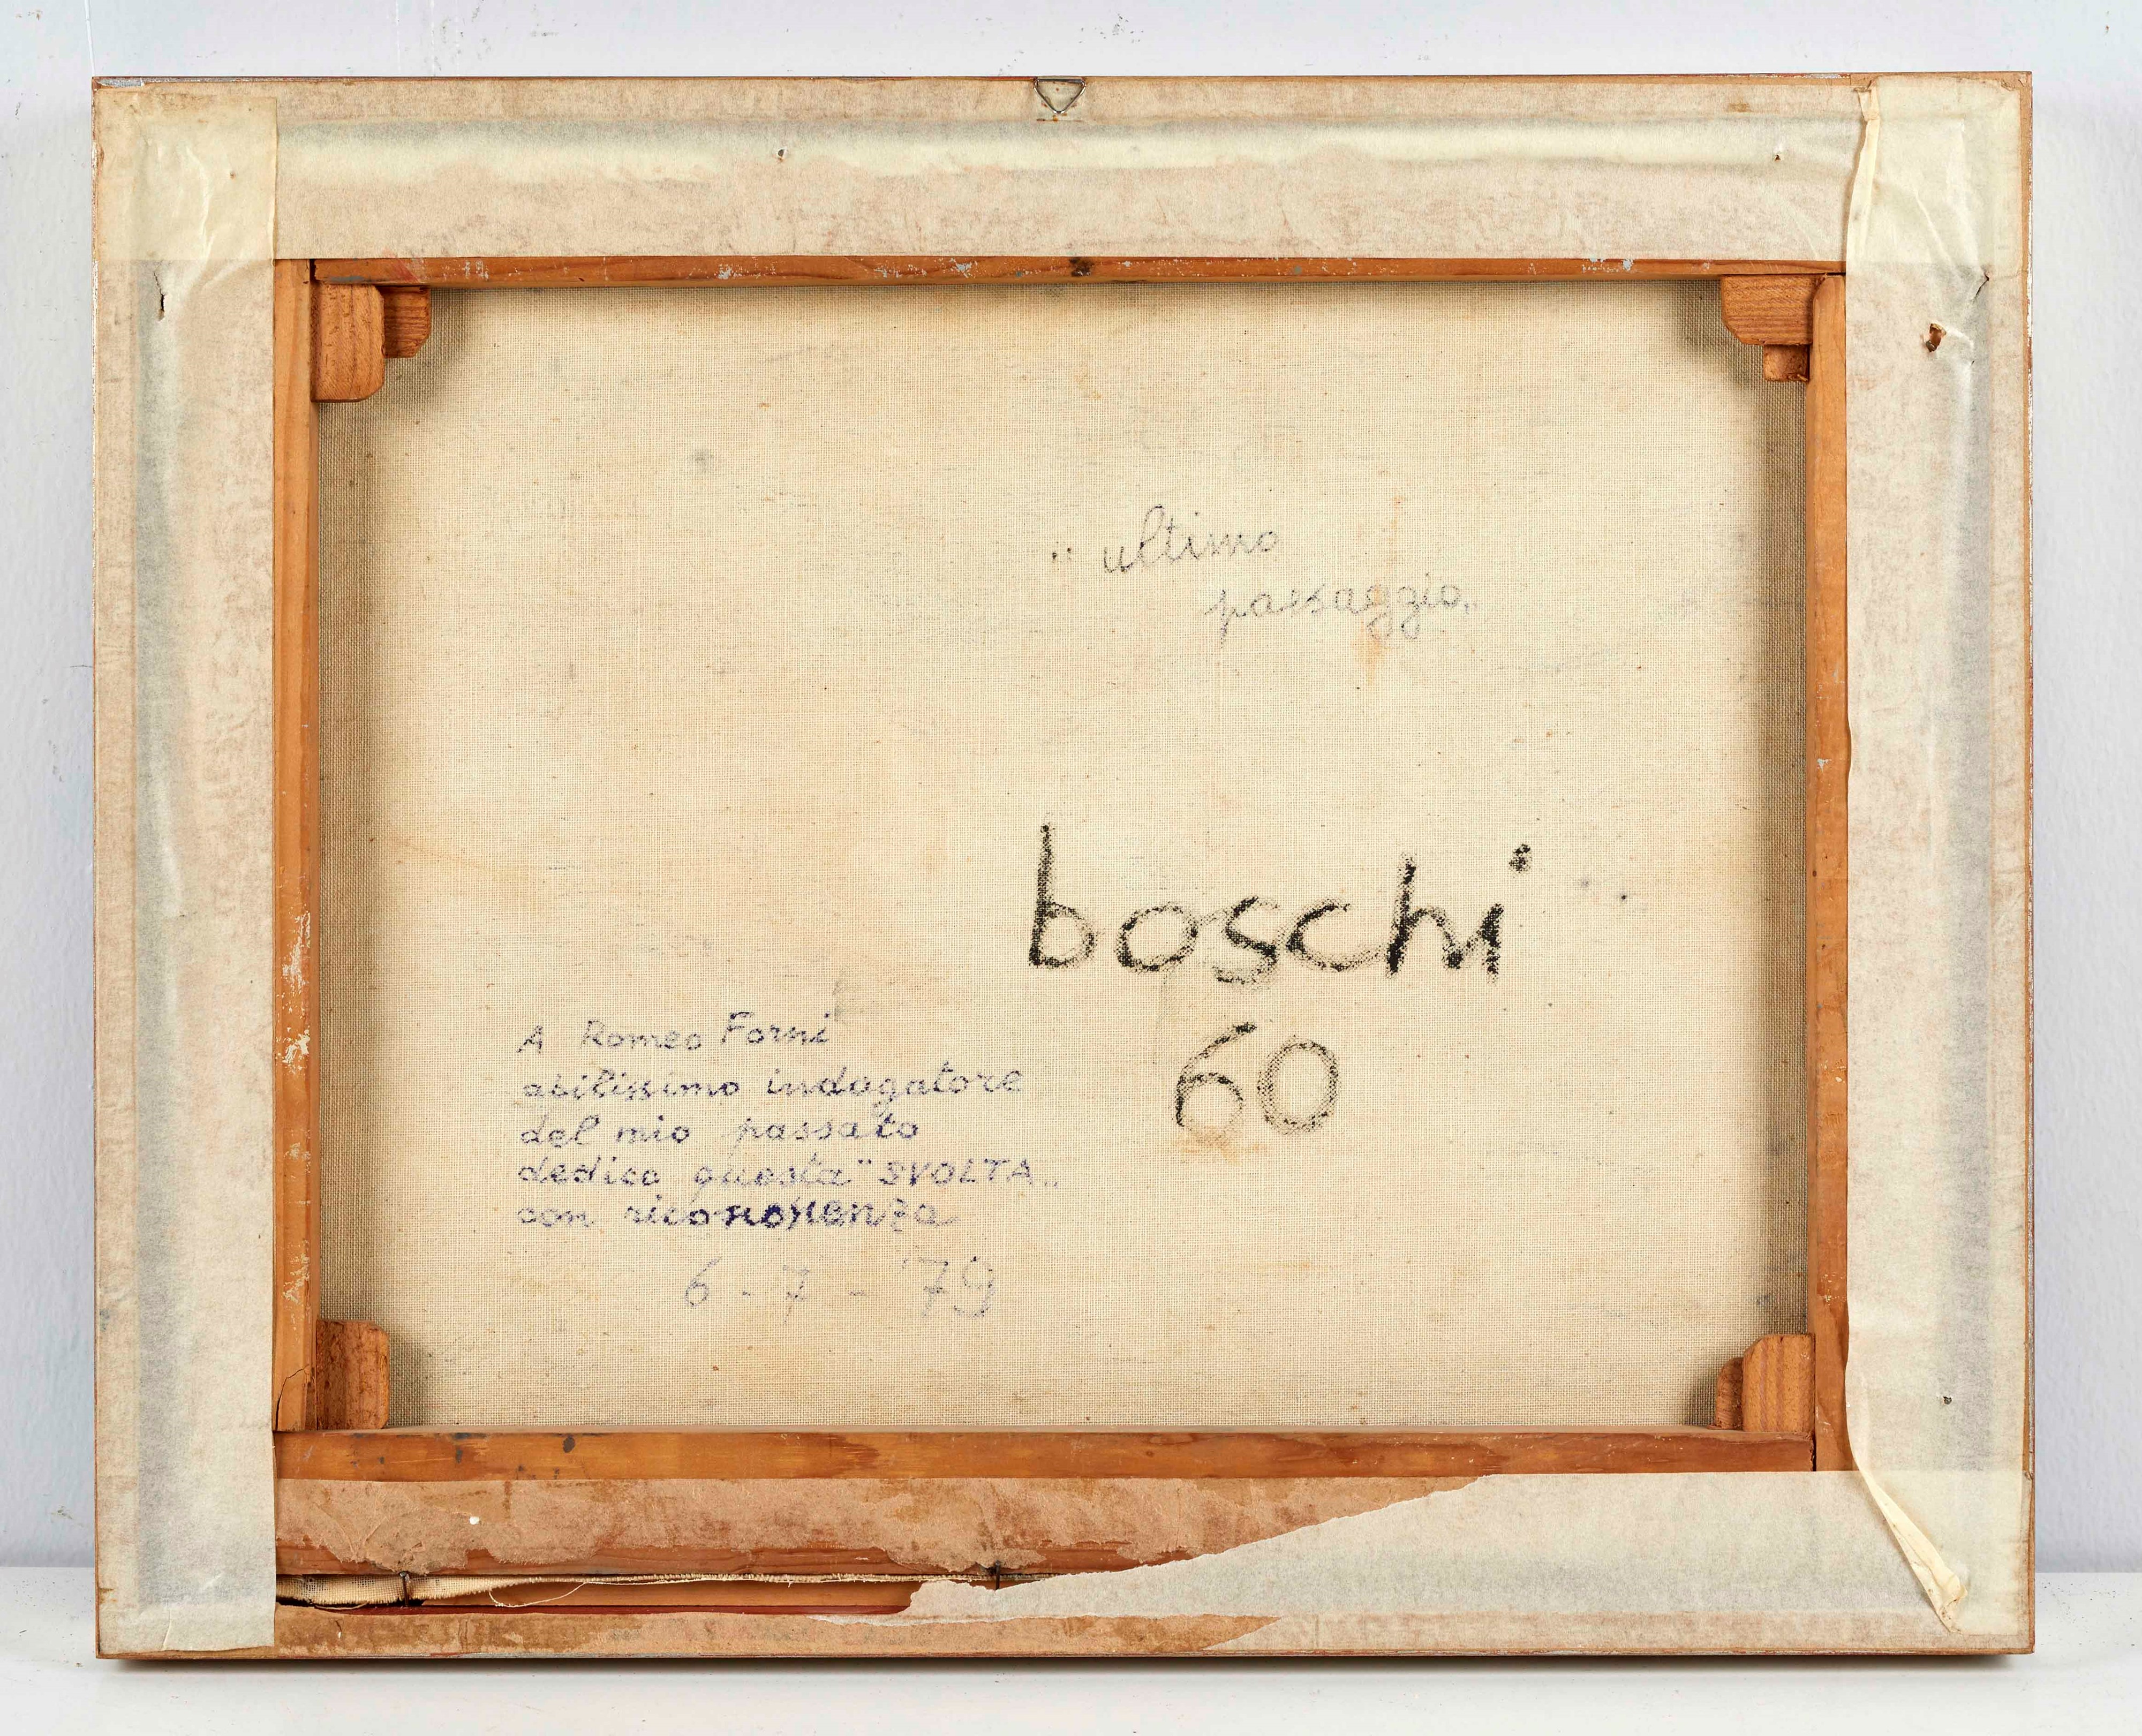 " ultimo
passaggio "
boschi
60
A Romeo Forni
abilissimo indagatore
del mio passato
dedico questa " SVOLTA "
con riconoscenza
6 - 7 - 79